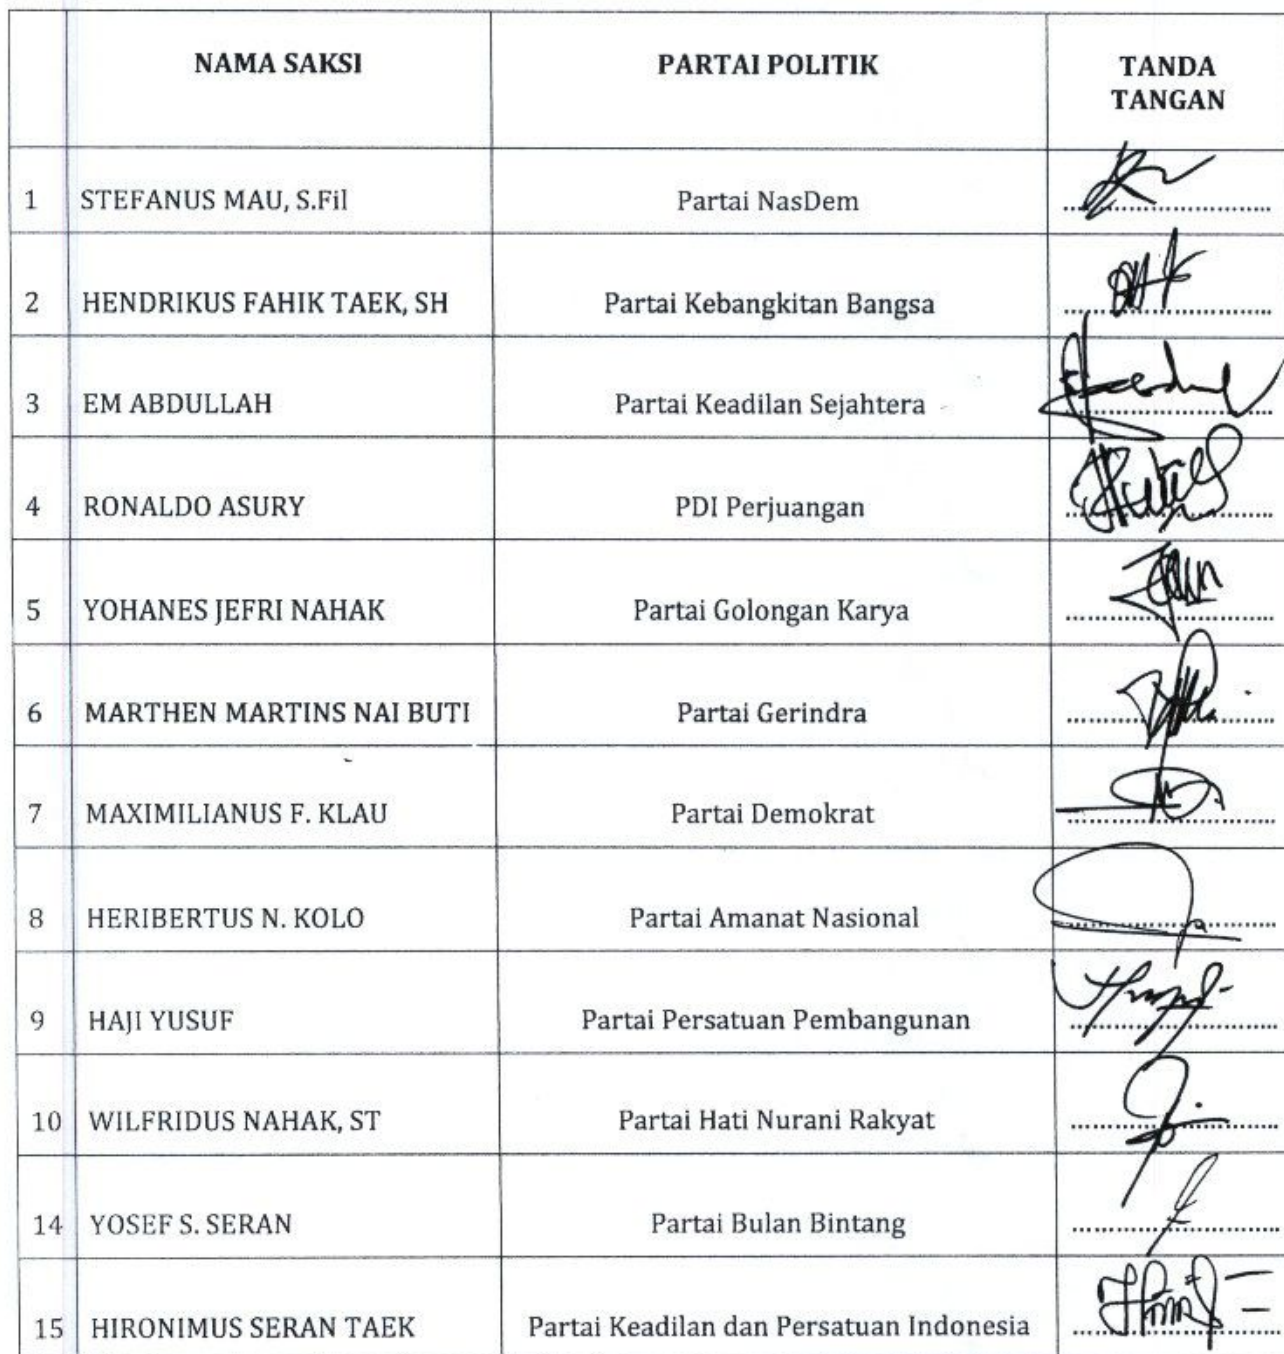 NAMA SAKSI PARTAI POLITIK TANDA
TANGAN
1 STEFANUS MAU, S.Fil Partai NasDem
2 HENDRIKUS FAHIK TAEK, SH Partai Kebangkitan Bangsa
3 EM ABDULLAH Partai Keadilan Sejahtera
4 RONALDO ASURY PDI Perjuangan
5 YOHANES JEFRI NAHAK Partai Golongan Karya
6 MARTHEN MARTINS NAI BUTI Partai Gerindra
7 MAXIMILIANUS F. KLAU Partai Demokrat
8 HERIBERTUS N. KOLO Partai Amanat Nasional
9 HAJI YUSUF Partai Persatuan Pembangunan
10 WILFRIDUS NAHAK, ST Partai Hati Nurani Rakyat
14 YOSEF S. SERAN Partai Bulan Bintang
15 HIRONIMUS SERAN TAEK Partai Keadilan dan Persatuan Indonesia